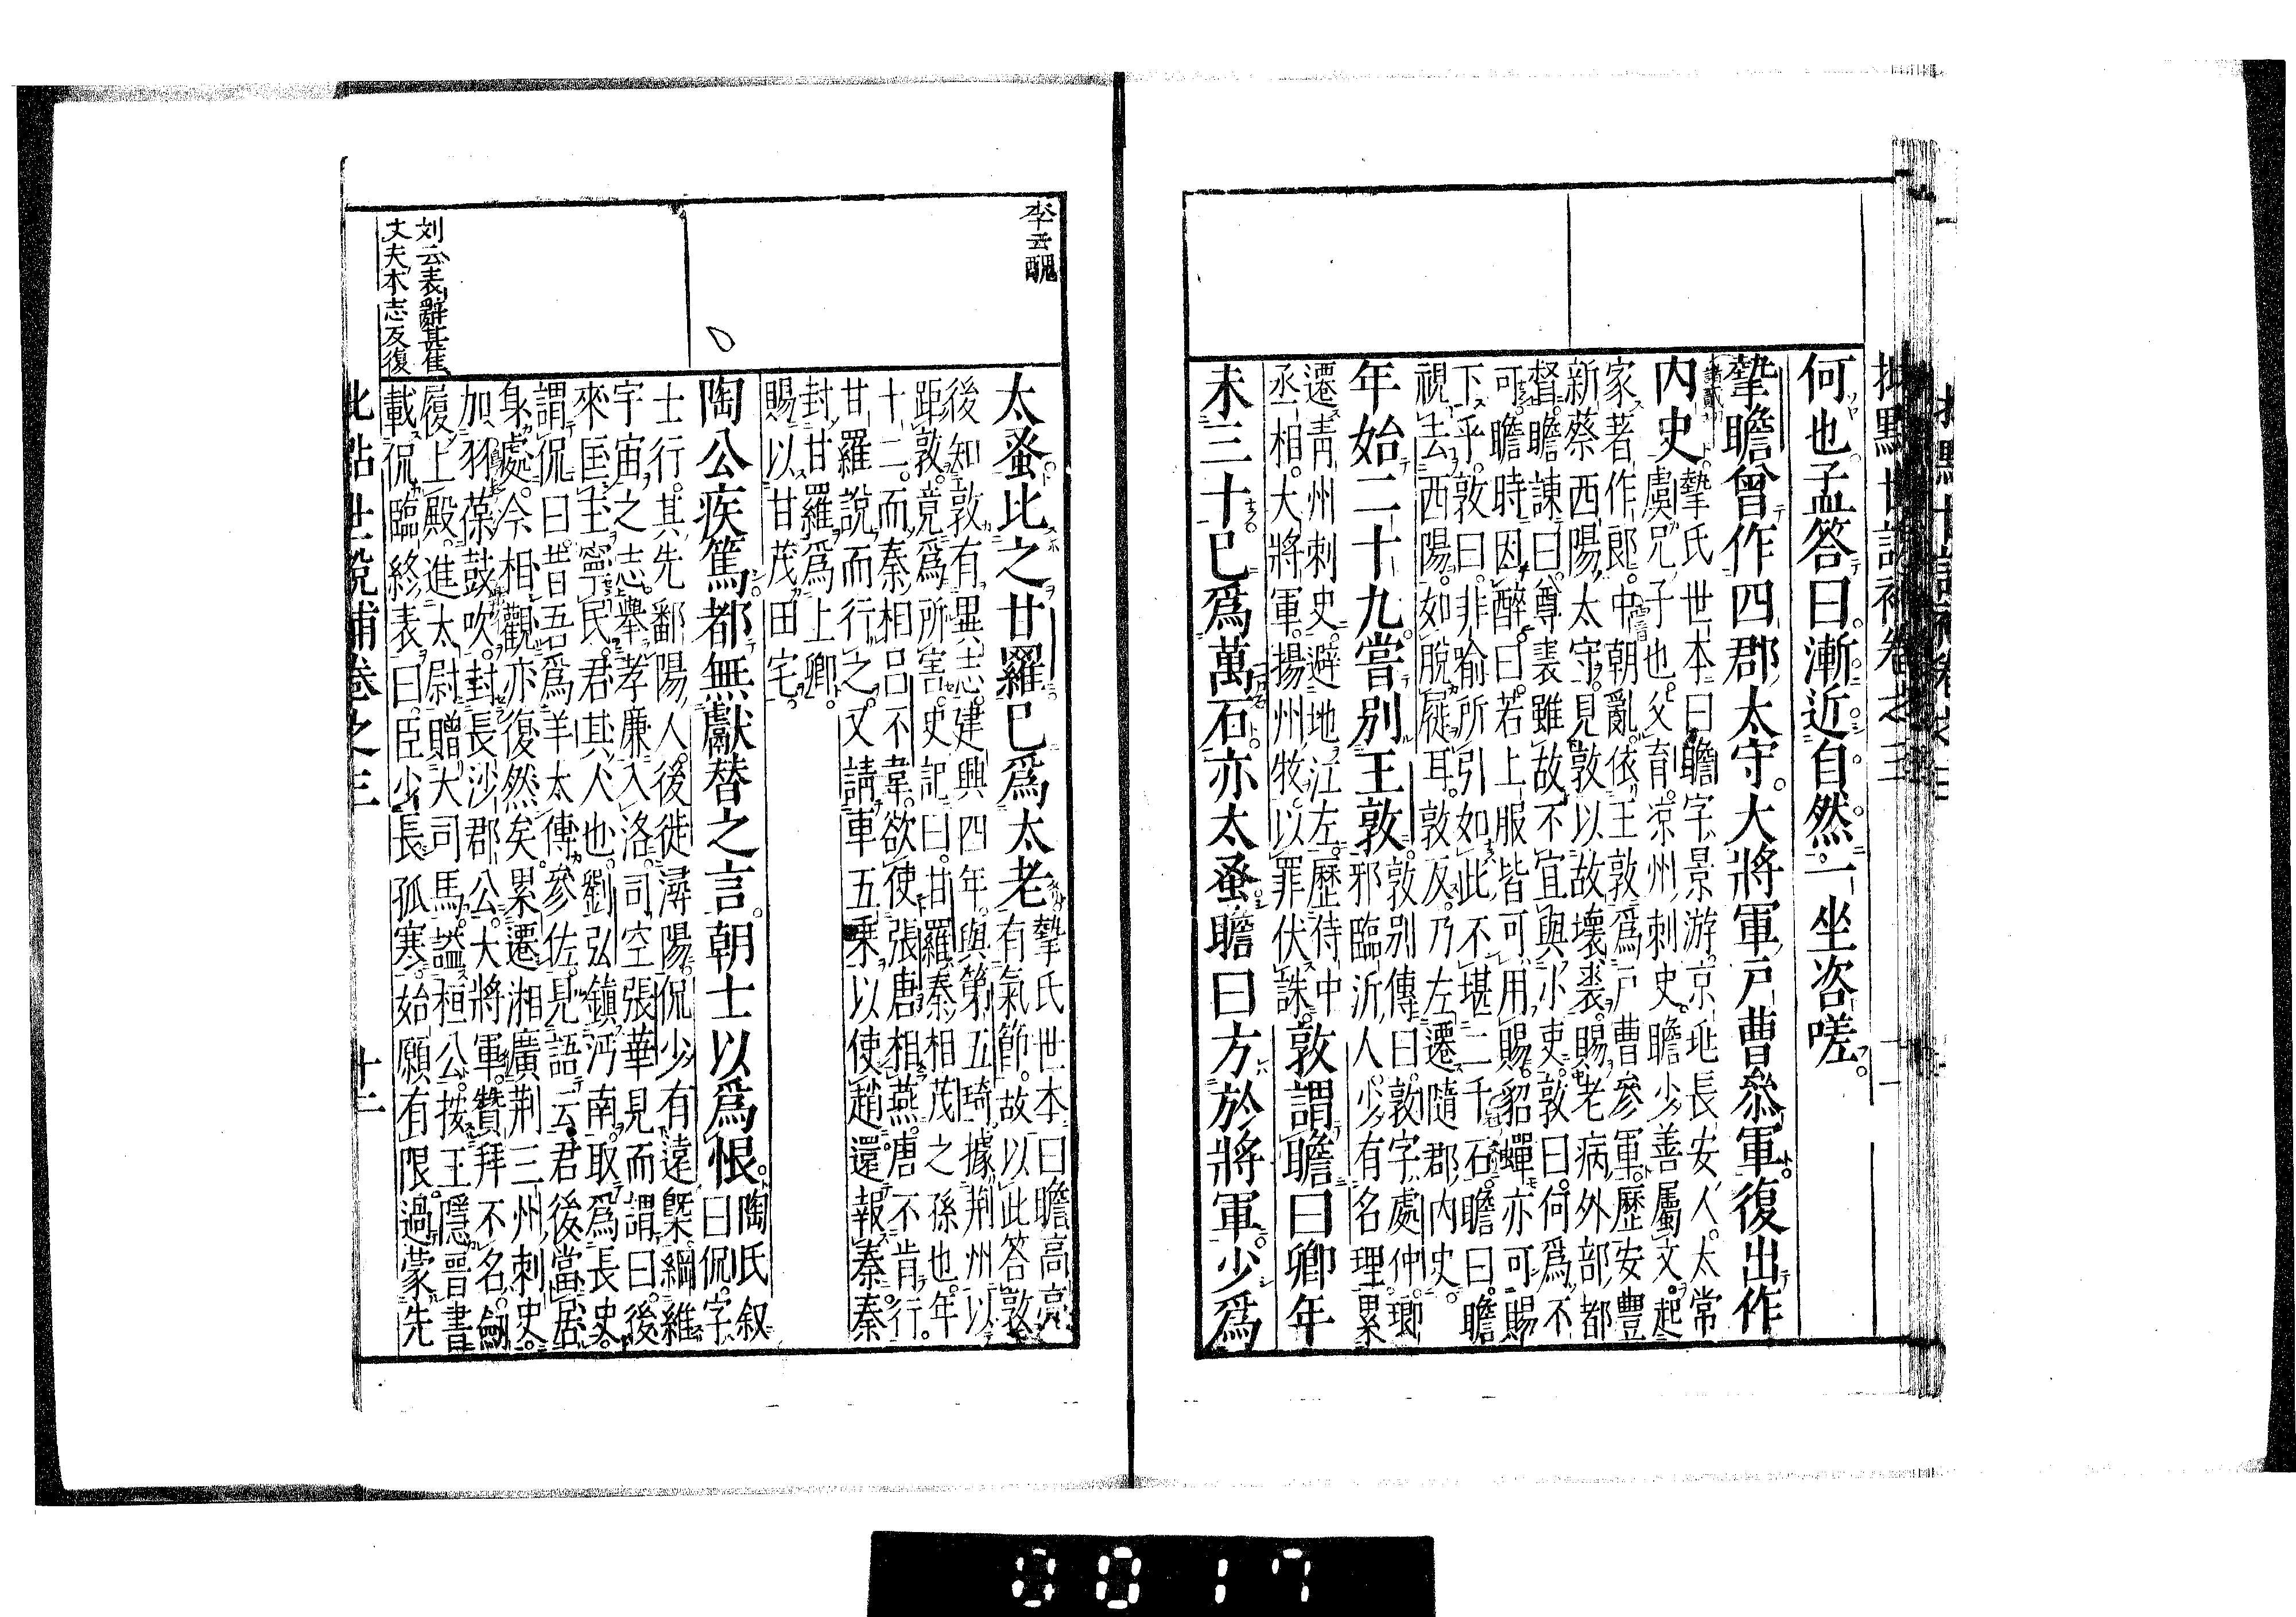 批點世說補卷之三
何也孟答曰漸近自然一坐咨嗟
摯瞻曾作四郡太守大將軍戸曹叅軍復出作
内史
摯氏世本曰瞻字景游京兆長安人太常
虞兄子也父育凉州刺史瞻少善屬文起
家著作郎中朝亂依王敦爲戸曹參軍歷安豐
新蔡西陽太守見敦以故壞裘賜老病外部都
督瞻諫曰尊裘雖故不宜與小吏敦曰何爲不
可瞻時因醉曰若上服皆可用賜貂蟬亦可賜
下乎敦曰非喻所引如此不堪二千石瞻曰瞻
視去西陽如脫屣耳敦反乃左遷隨郡内史
年始二十九嘗別王敦
敦別傳曰敦字處仲瑯
邪臨沂人少有名理累
遷青州刺史避地江左歷侍中
丞相大將軍揚州牧以罪伏誅
敦謂瞻曰卿年
未三十已爲萬石亦太蚤瞻曰方於將軍少爲
李云醜
太蚤比之甘羅已爲太老
摯氏世本曰瞻高亮
有氣節故以此答敦
後知敦有異志建興四年與第五琦據荆州以
距敦竟爲所害史記曰甘羅秦相茂之孫也年
十二而秦相呂不韋欲使張唐相燕唐不肯行
甘羅說而行之又請車五乘以使趙還報秦秦
封甘羅爲上卿
賜以甘茂田宅
陶公疾篤都無獻替之言朝士以爲恨
陶氏叙
曰侃字
士行其先鄱陽人後徙潯陽侃少有遠槩綱維
宇宙之志舉孝廉入洛司空張華見而謂曰後
來匡主寧民君其人也劉弘鎮沔南取爲長史
謂侃曰昔吾爲羊太傅參佐見語云君後當居
身處今相觀亦復然矣累遷湘廣荆三州刺史
加羽葆鼓吹封長沙郡公大將軍贊拜不名劒
履上殿進太尉贈大司馬謚桓公按王隱晉書
載侃臨終表曰臣少長孤寒始願有限過蒙先
刘云表辭甚隹
丈夫本志反復
批點世說補卷之三
十二
0017